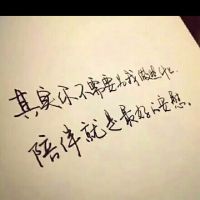 其实你不需要为我做过什么
陪伴就是最好的安慰。